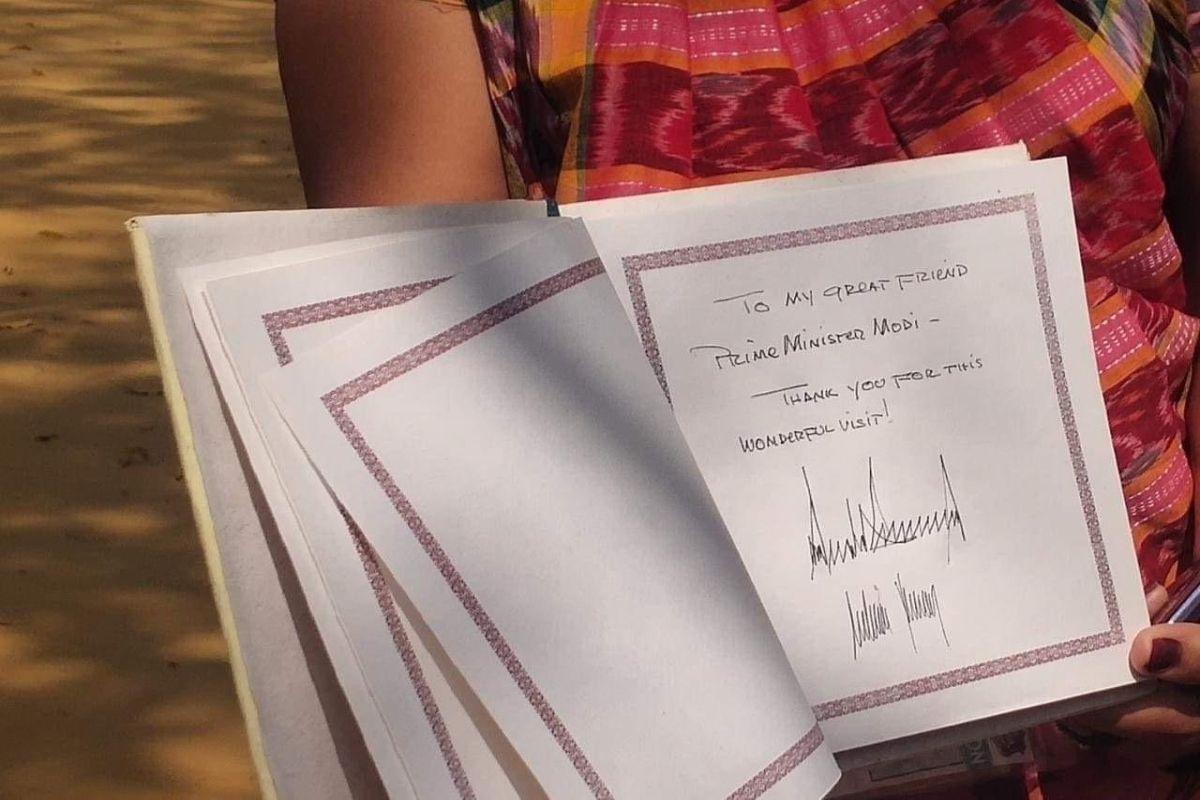 TO MY GREAT FRIEND
PRIME MINISTER MODI –
THANK YOU FOR THIS
WONDERFUL VISIT!